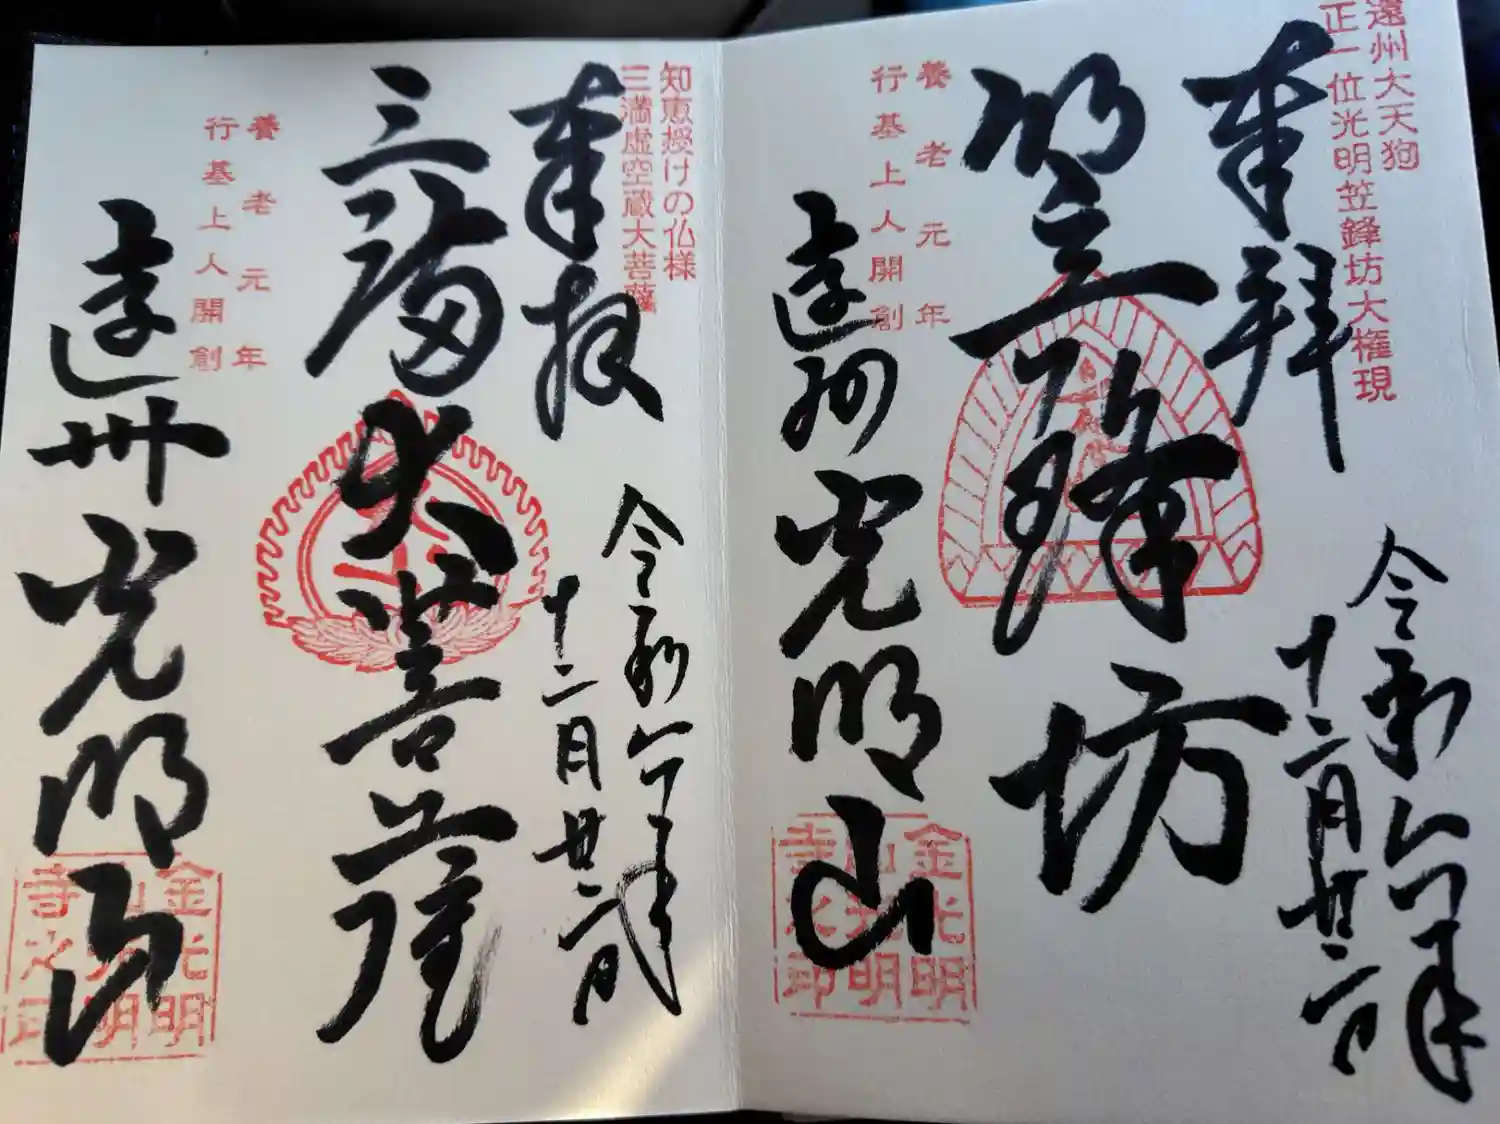 遠州大天狗
正一位光明笠鋒坊大権現
奉拝
令和六年
十二月廿二日
笠鋒坊
養老元年
行基上人開創
遠州光明山
金光明
山光明
寺之印
知恵授けの仏様
三満虚空蔵大菩薩
奉拝
令和六年
十二月廿二日
三満大菩薩
養老元年
行基上人開創
遠州光明山
金光明
山光明
寺之印